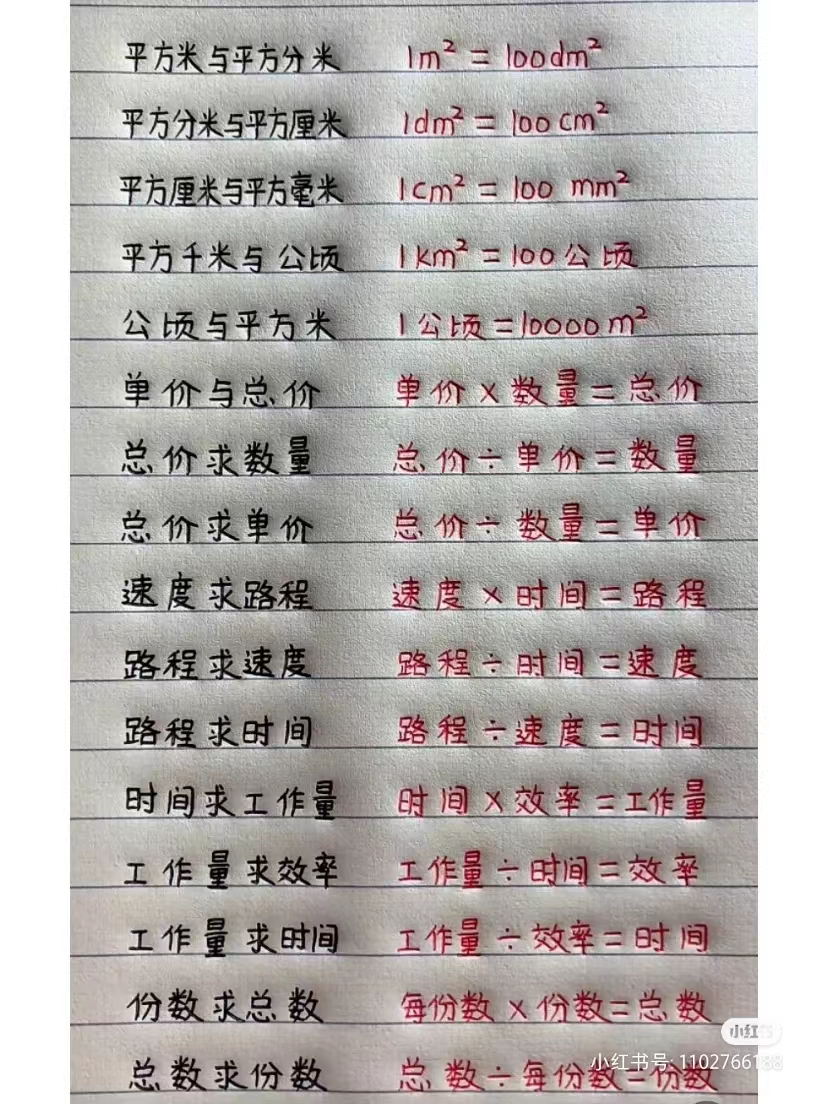 平方米与平方分米 1m² = 100dm²
平方分米与平方厘米 1dm² = 100cm²
平方厘米与平方毫米 1cm² = 100 mm²
平方千米与公顷 1km² = 100公顷
公顷与平方米 1公顷=10000m²
单价与总价 单价×数量=总价
总价求数量 总价÷单价=数量
总价求单价 总价÷数量=单价
速度求路程 速度×时间=路程
路程求速度 路程÷时间=速度
路程求时间 路程÷速度=时间
时间求工作量 时间×效率=工作量
工作量求效率 工作量÷时间=效率
工作量求时间 工作量÷效率=时间
份数求总数 每份数×份数=总数
小红书
小红书号: 1102766188
总数求份数 总数÷每份数=份数